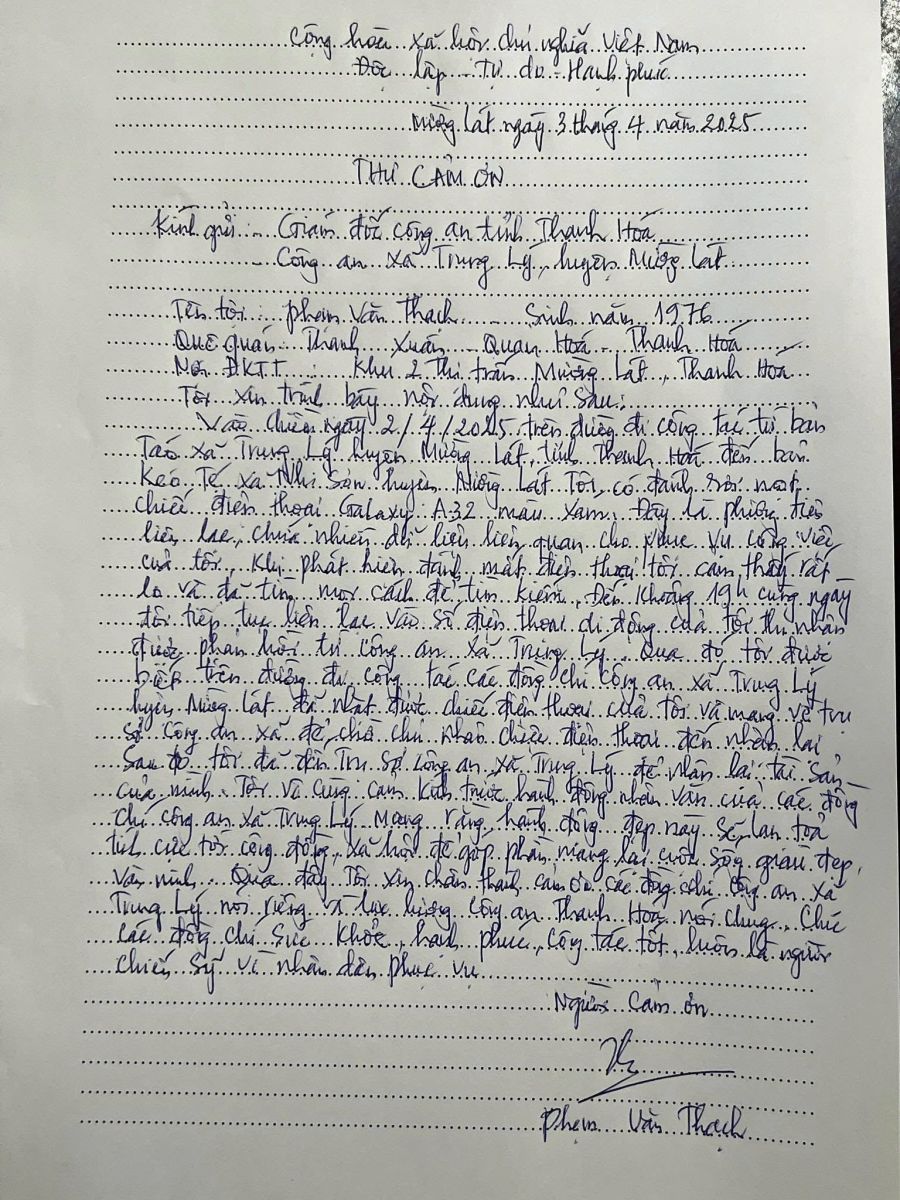 Cộng hòa xã hội chủ nghĩa Việt Nam
Độc lập Tự do Hạnh phúc
Mường Lát ngày 3 tháng 4 năm 2025
THƯ CẢM ƠN
Kính gửi: Giám đốc công an tỉnh Thanh Hoá
Công an xã Trung Lý, huyện Mường Lát
Tên tôi: Phạm Văn Thạch Sinh năm 1976
Quê quán Thanh Xuân Quan Hoá Thanh Hoá
Nơi ĐKTT: Khu 2 Thị trấn Mường Lát, Thanh Hoá
Tôi xin trình bày nội dung như sau:
Vào chiều ngày 2/4/2025 trên đường đi công tác từ bản
Táo xã Trung Lý huyện Mường Lát, tỉnh Thanh Hoá đến bản
Kéo Té xã Nhi Sơn huyện Mường Lát Tôi có đánh rơi một
chiếc điện thoại Galaxy A32 màu xám. Đây là phương tiện
liên lạc, chứa nhiều dữ liệu liên quan cho phục vụ công việc
của tôi, Khi phát hiện đánh mất điện thoại tôi cảm thấy rất
lo và đã tìm mọi cách để tìm kiếm, Đến khoảng 19h cùng ngày
tôi tiếp tục liên lạc vào số điện thoại di động của tôi thì nhận
được phản hồi từ công an xã Trung Lý. Qua đó tôi được
biết trên đường đi công tác các đồng chí công an xã Trung Lý
huyện Mường Lát đã nhặt được chiếc điện thoại của tôi và mang về trụ
sở công an xã để chờ chủ nhân chiếc điện thoại đến nhận lại
Sau đó tôi đã đến Trụ sở công an xã Trung Lý để nhận lại tài sản
của mình. Tôi vô cùng cảm kích trước hành động nhân văn của các đồng
chí công an xã Trung Lý Mong rằng, hành động đẹp này sẽ lan toả
tích cực tới cộng đồng, xã hội để góp phần mang lại cuộc sống giàu đẹp,
văn minh. Qua đây Tôi xin chân thành cảm ơn các đồng chí công an xã
Trung Lý nói riêng và lực lượng công an Thanh Hoá nói chung, Chúc
các đồng chí sức khoẻ, hạnh phúc, công tác tốt, luôn là người
chiến sỹ vì nhân dân phục vụ
Người cảm ơn
Phạm Văn Thạch